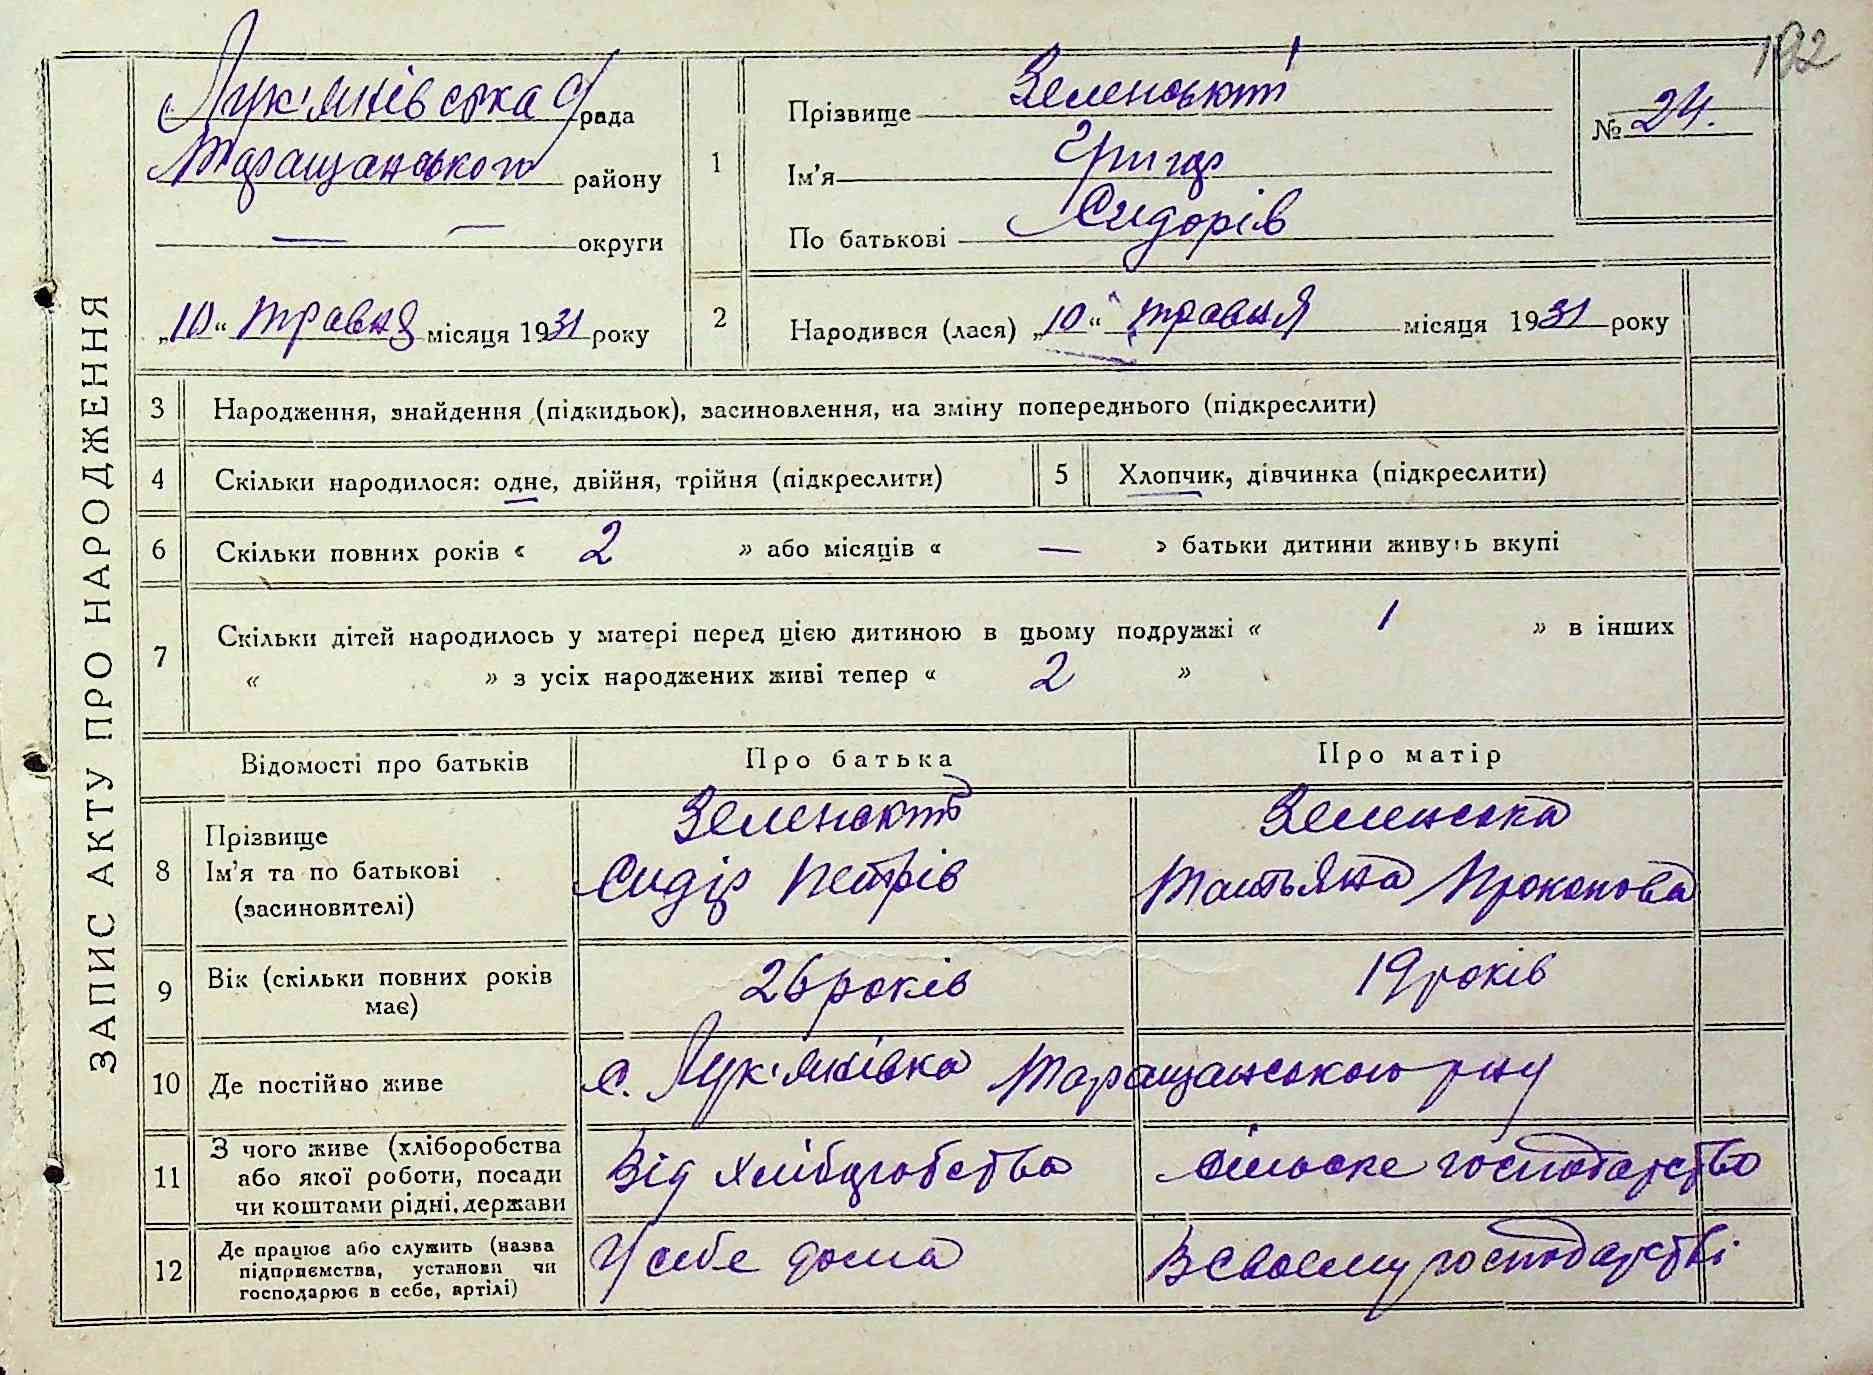 192
ЗАПИС АКТУ ПРО НАРОДЖЕННЯ
Лук'янівська с/рада
Таращанського району
— — округи
„10“ травня місяця 1931 року
1
Прізвище Зеленський
Ім'я Григор
По батькові Сидорів
№ 24.
2 Народився (лася) „10“ травня місяця 1931 року
3 Народження, знайдення (підкидьок), засиновлення, на зміну попереднього (підкреслити)
4 Скільки народилося: одне, двійня, трійня (підкреслити)
5 Хлопчик, дівчинка (підкреслити)
6 Скільки повних років « 2 » або місяців « — » батьки дитини живуть вкупі
7 Скільки дітей народилось у матері перед цією дитиною в цьому подружжі « 1 » в інших
« » з усіх народжених живі тепер « 2 »
Відомості про батьків Про батька Про матір
8 Прізвище
Ім'я та по батькові
(засиновителі)
Зеленский
Сидір Петрів
Зеленська
Татьяна Прокопова
9 Вік (скільки повних років
має)
26 років
19 років
10 Де постійно живе
с. Лук'янівка Таращанського р-ну
11 З чого живе (хліборобства
або якої роботи, посади
чи коштами рідні, держави
Від хліборобства
сільске господарство
12 Де працює або служить (назва
підприємства, установи чи
господарює в себе, артілі)
У себе дома
В своєму господарстві